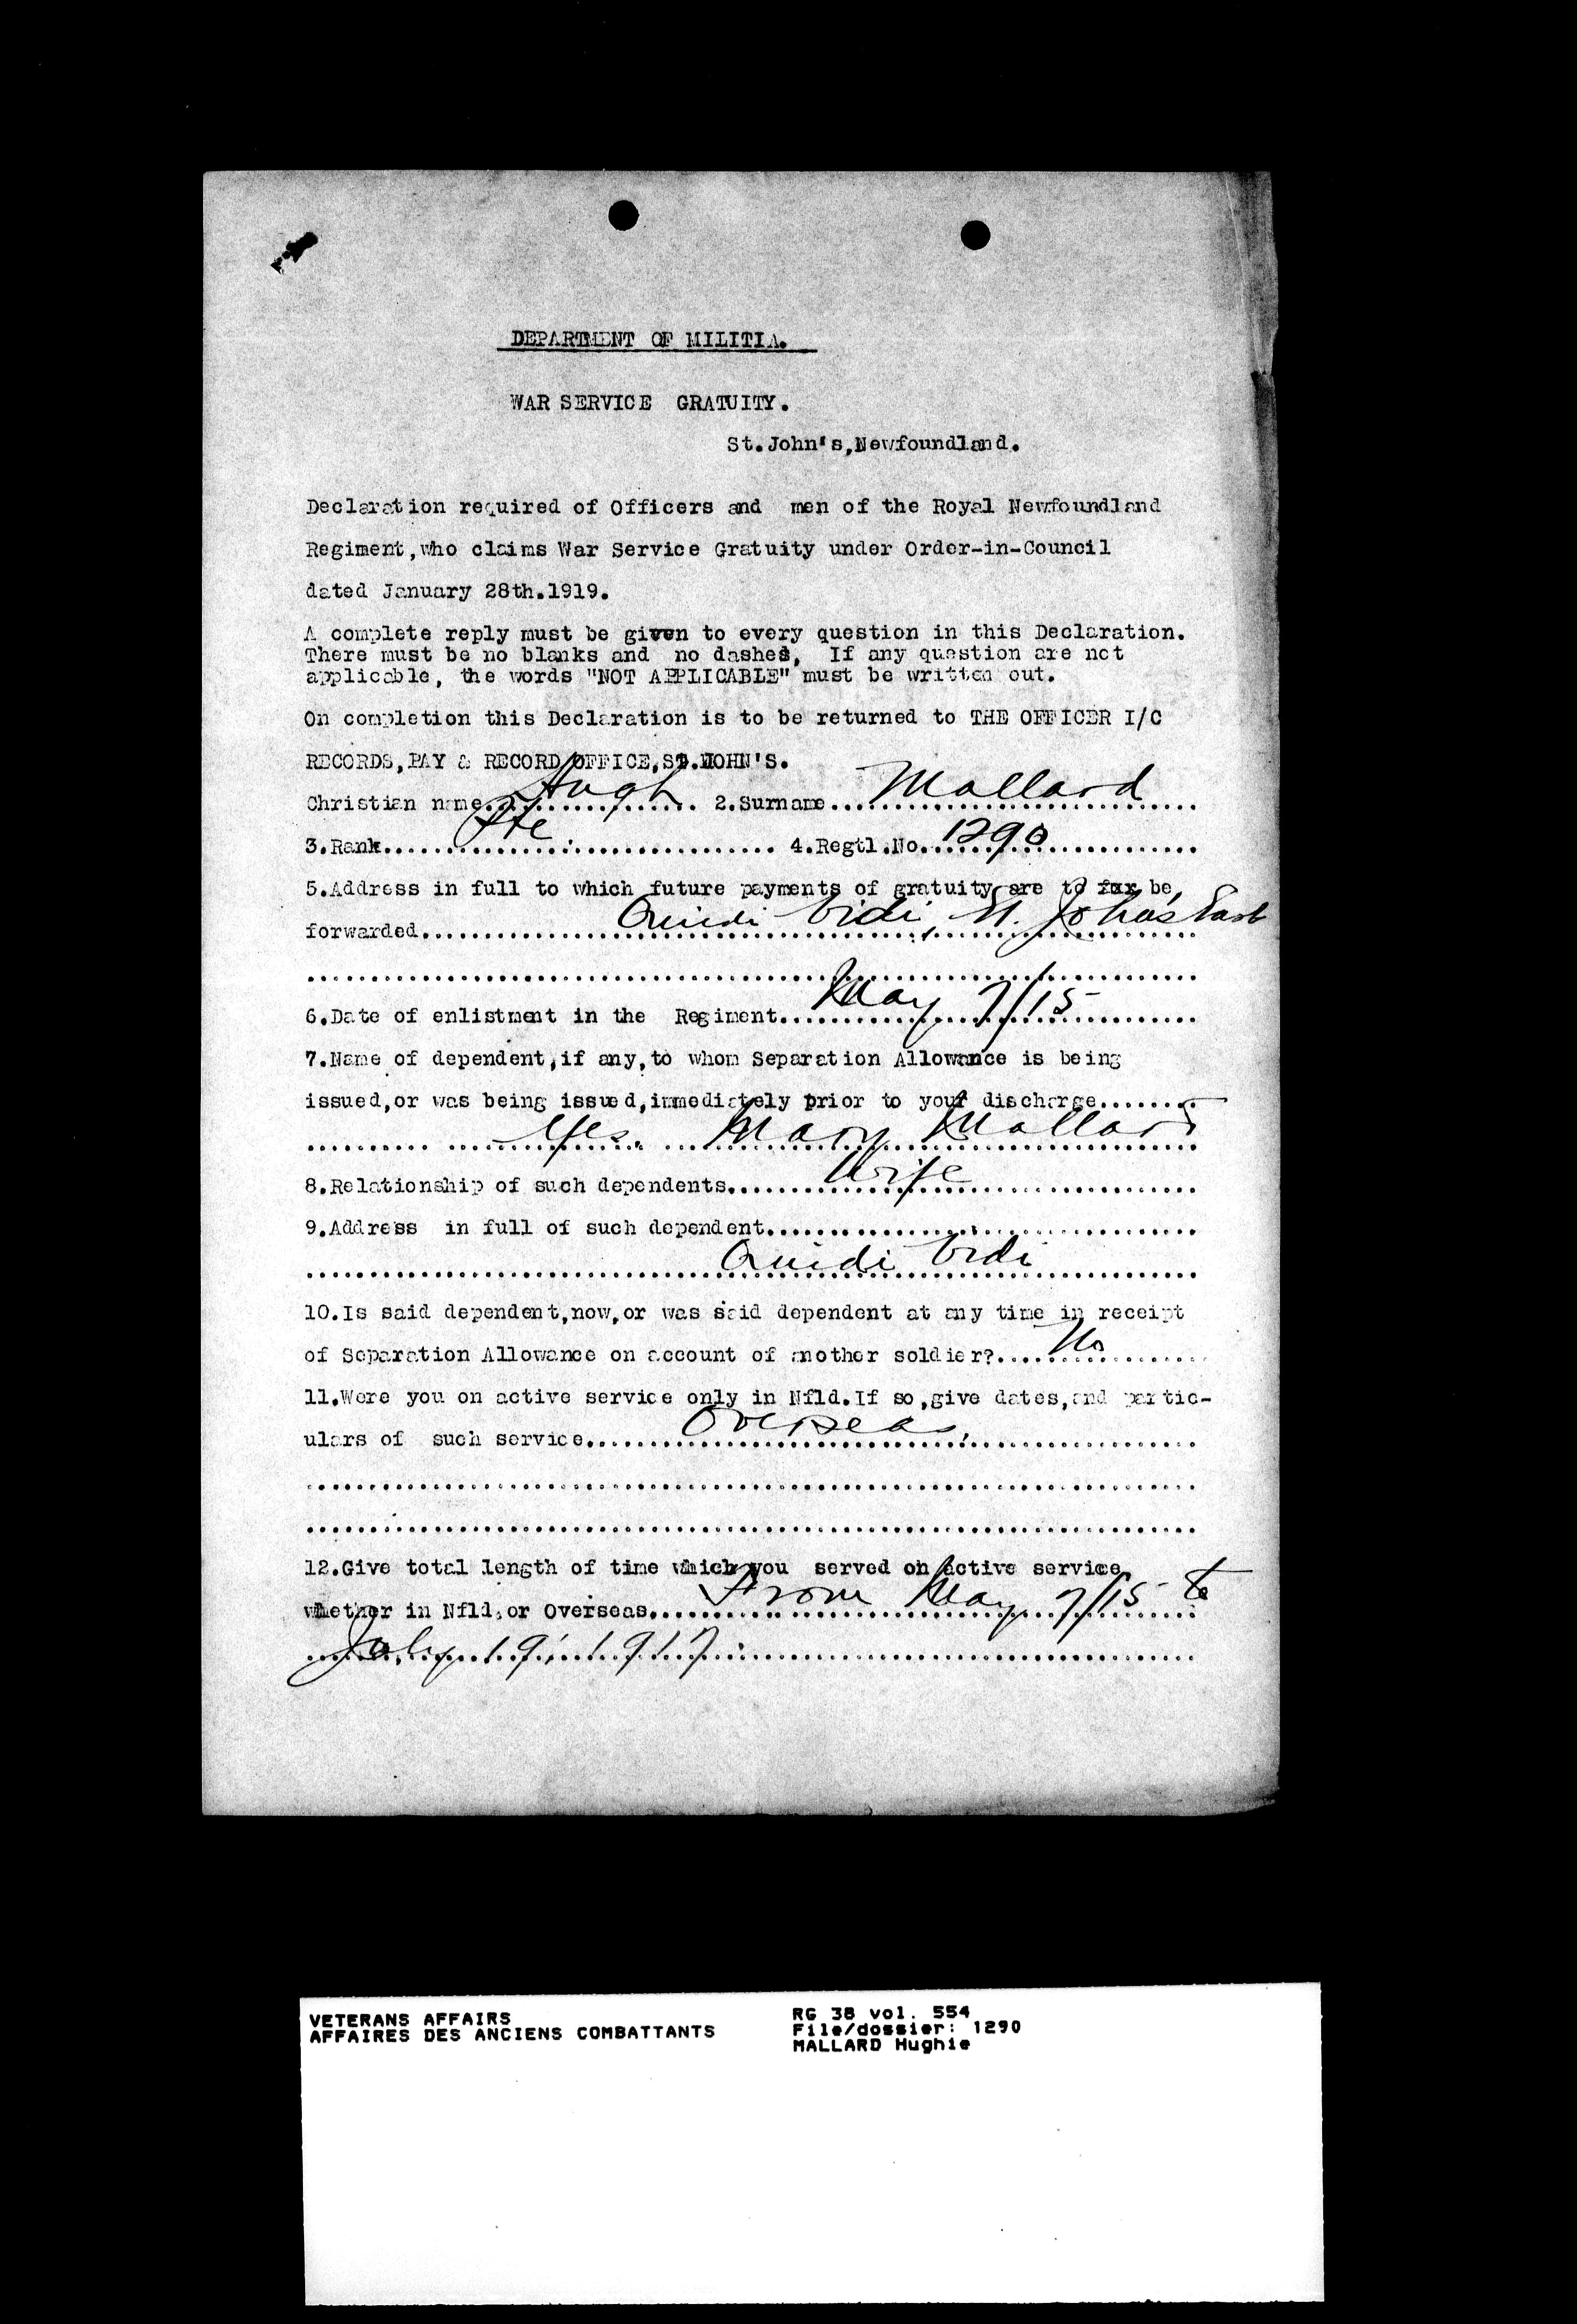 DEPARTMENT OF MILITIA.
WAR SERVICE GRATUITY.
St.John's,Newfoundland.
Declaration required of Officers and men of the Royal Newfoundland
Regiment,who claims War Service Gratuity under Order-in-Council
dated January 28th.1919.
A complete reply must be given to every question in this Declaration.
There must be no blanks and no dashes, If any question are not
applicable, the words "NOT APPLICABLE" must be written out.
On completion this Declaration is to be returned to THE OFFICER I/C
RECORDS,PAY & RECORD OFFICE,ST.JOHN'S.
Christian name Hugh 2.Surname Mallard
3.Rank Pte 4.Regtl.No. 1290
5.Address in full to which future payments of gratuity are to be
forwarded Quidi Vidi, St. John's East
6.Date of enlistment in the Regiment May 7/15
7.Name of dependent,if any,to whom Separation Allowance is being
issued,or was being issued,immediately prior to your discharge
Yes. Mary Mallard
8.Relationship of such dependents Wife
9.Address in full of such dependent
Quidi Vidi
10.Is said dependent,now,or was said dependent at any time in receipt
of Separation Allowance on account of another soldier? No
11.Were you on active service only in Nfld.If so,give dates,and partic-
ulars of such service Overseas
12.Give total length of time which you served on active service
whether in Nfld,or Overseas From May 7/15 to
July 19, 1917
VETERANS AFFAIRS
AFFAIRES DES ANCIENS COMBATTANTS
RG 38 vol. 554
File/dossier: 1290
MALLARD Hughie